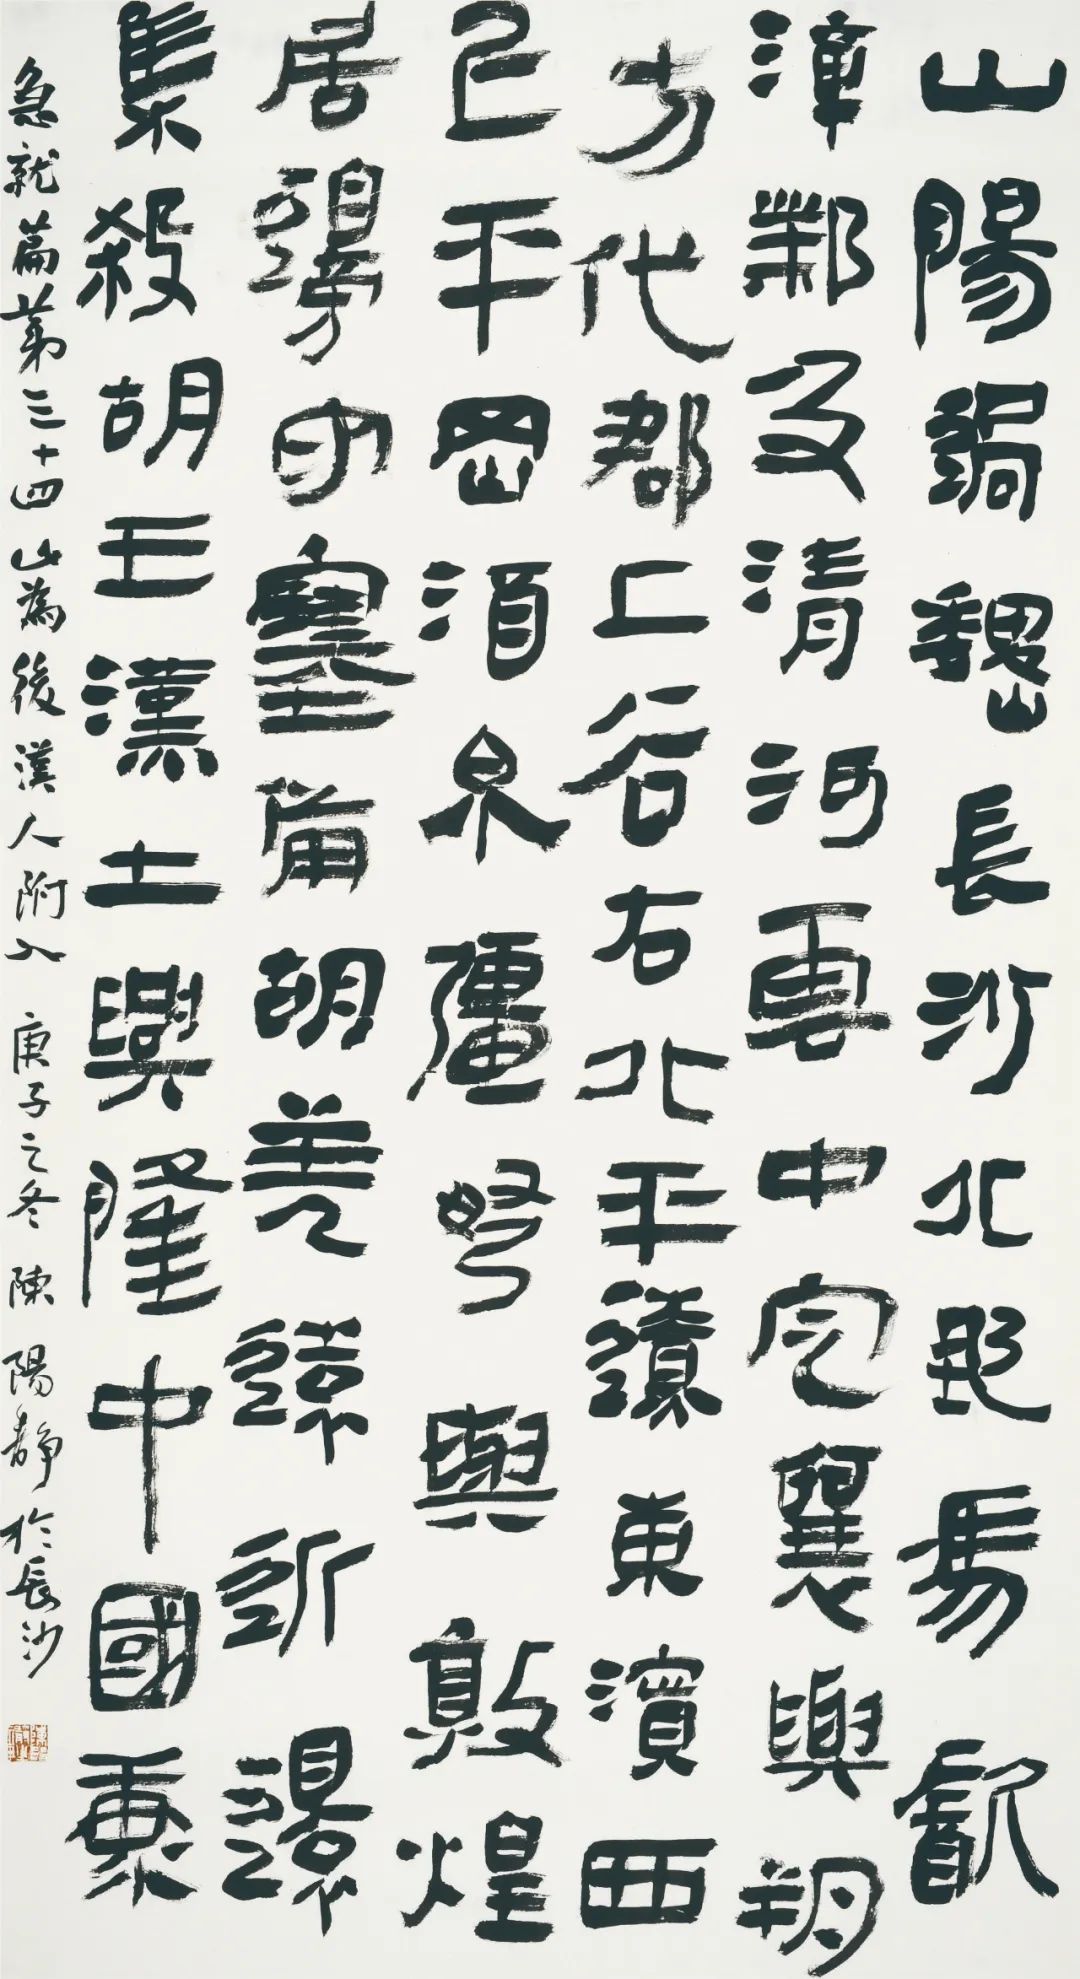 山陽過魏長沙北地馬飲
漳鄴及清河雲中定襄與朔
方代郡上谷右北平遼東濱西
平岡酒泉彊弩與敦煌
居邊守塞備胡羌遠近還
集殺胡王漢土興隆中國康
急就篇第三十四 此為後漢人附入 庚子之冬 陳陽靜於長沙